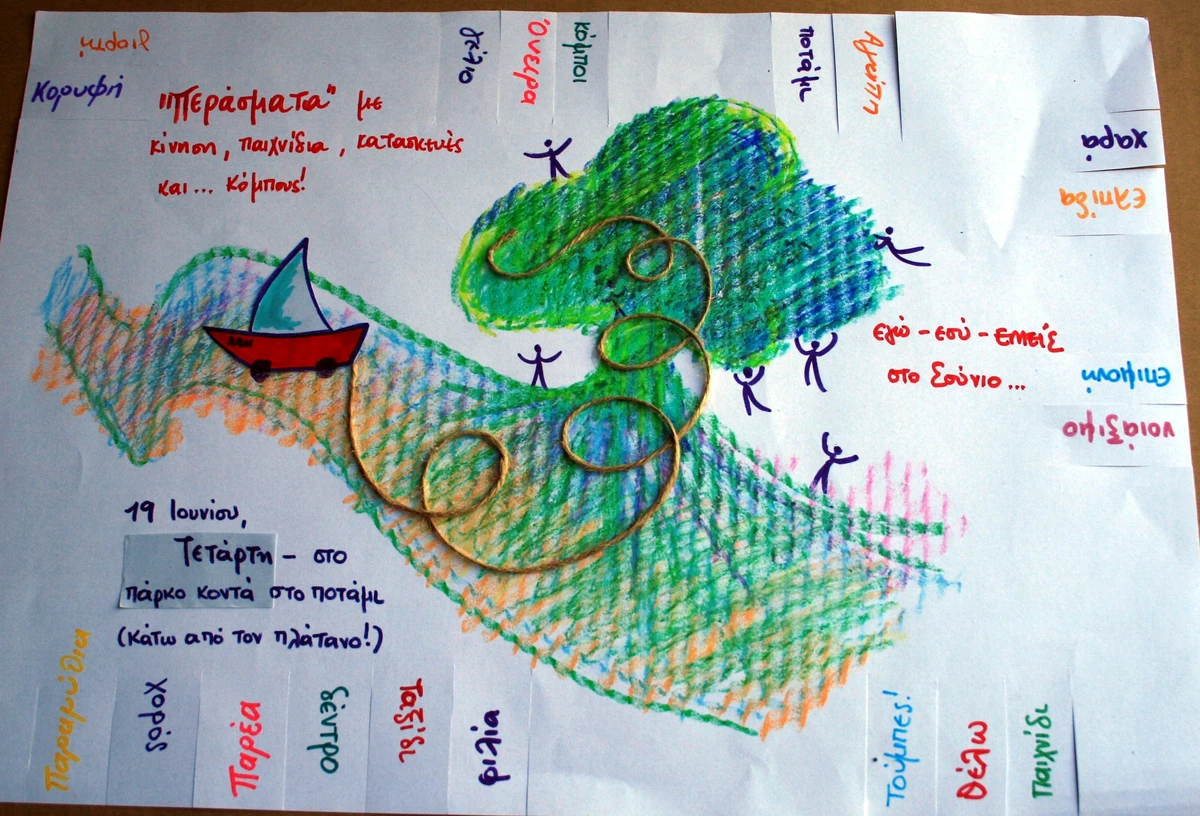 γιορτή
Κορυφή
"Περάσματα" με
κίνηση, παιχνίδια, κατασκευές
και... κόμπους!
γέλιο
Όνειρα
κόμποι
ποτάμι
Αγάπη
χαρά
ελπίδα
εγώ - εσύ - εμείς
στο Σούνιο...
επιμονή
νοιάξιμο
19 Ιουνίου,
Τετάρτη - στο
πάρκο κοντά στο ποτάμι
(κάτω από τον πλάτανο!)
Παραμύθια
χορός
Παρέα
δέντρο
Ταξίδι
φιλία
Τούμπες!
Θέλω
παιχνίδι